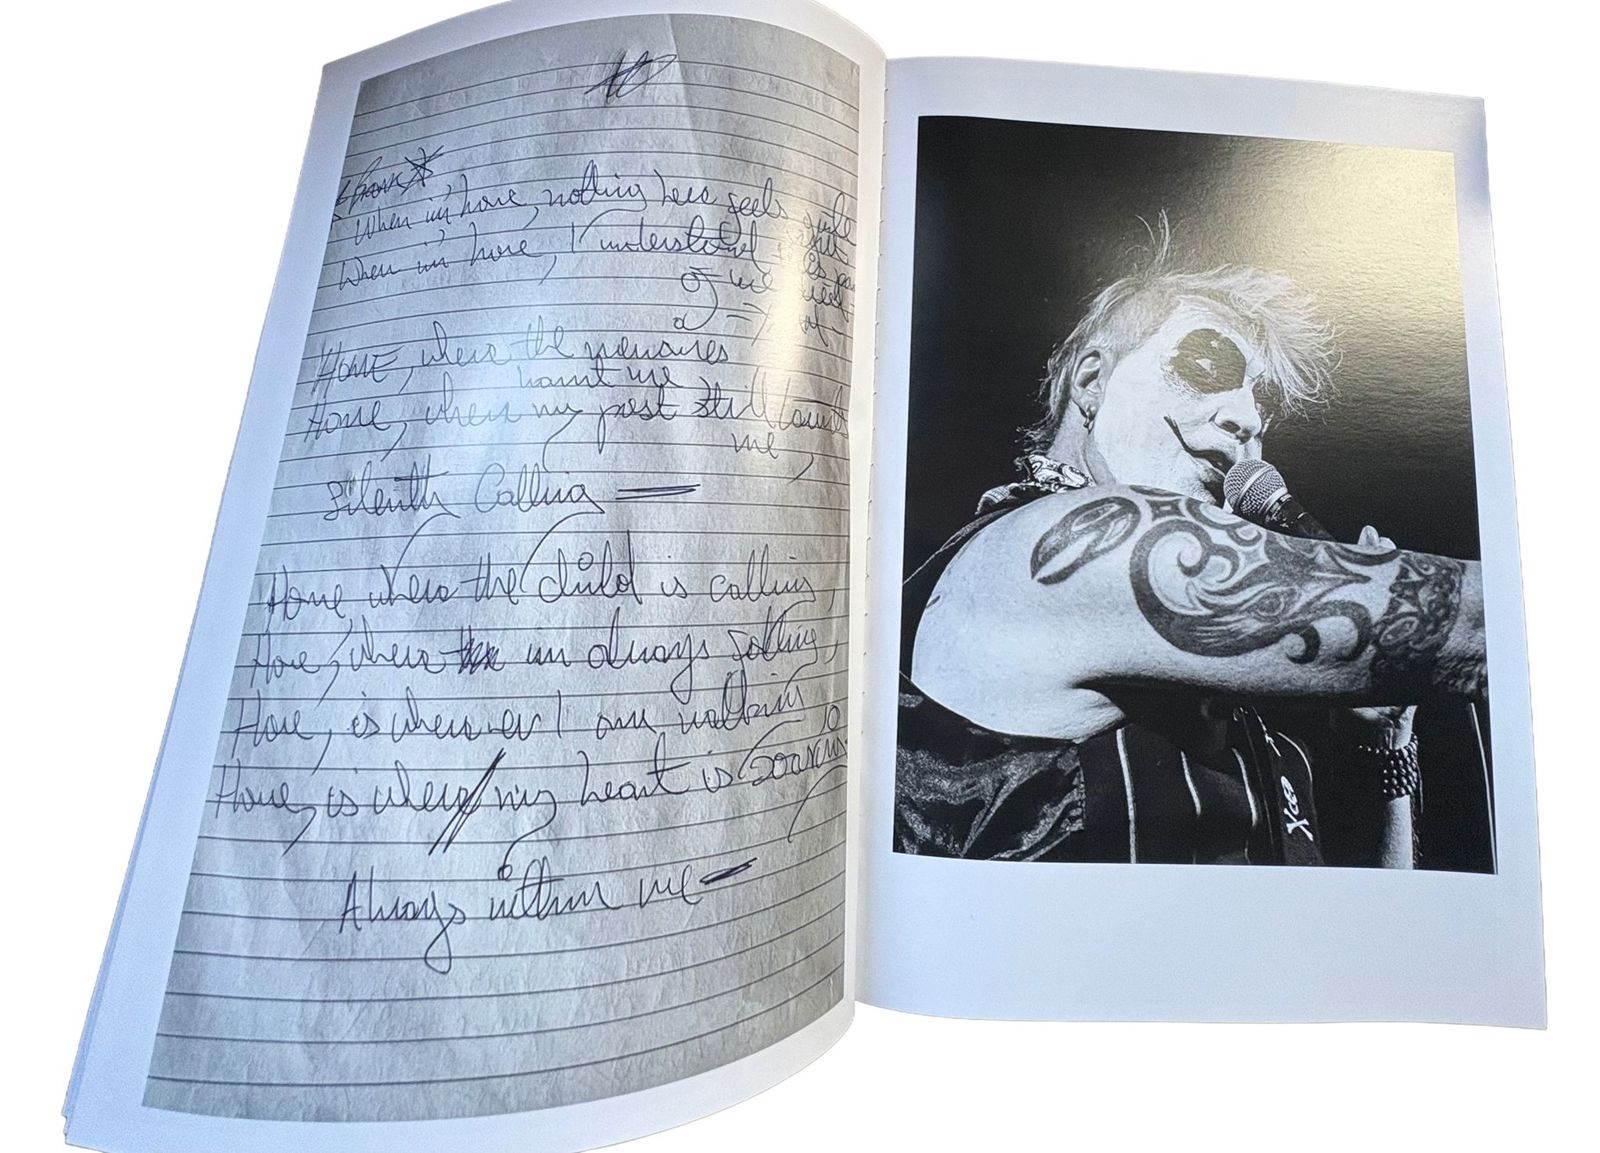 When im' home, nothing here feels quite
When im' home, I understand
of me
Home, where the memories
haunt me
Home, where my past still haunt
me,
Silently Calling
Home, where the child is calling,
Home, where im always falling,
Home, is wherever I am walking
Home, is where my heart is soaring
Always within me